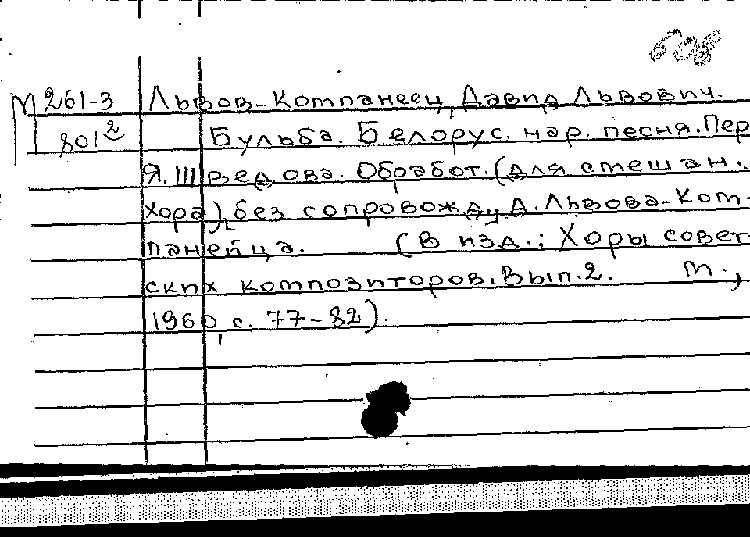 М 261-3 Львов-Компанеец, Давид Львович.
801² Бульба. Белорус. нар. песня. Пер
Я. Шведова. Обработ. (для смешан.
хора), без сопровожд., Д. Львова-Ком-
панейца. (В изд.: Хоры совет-
ских композиторов. Вып. 2. М.,
1960, с. 77-82).